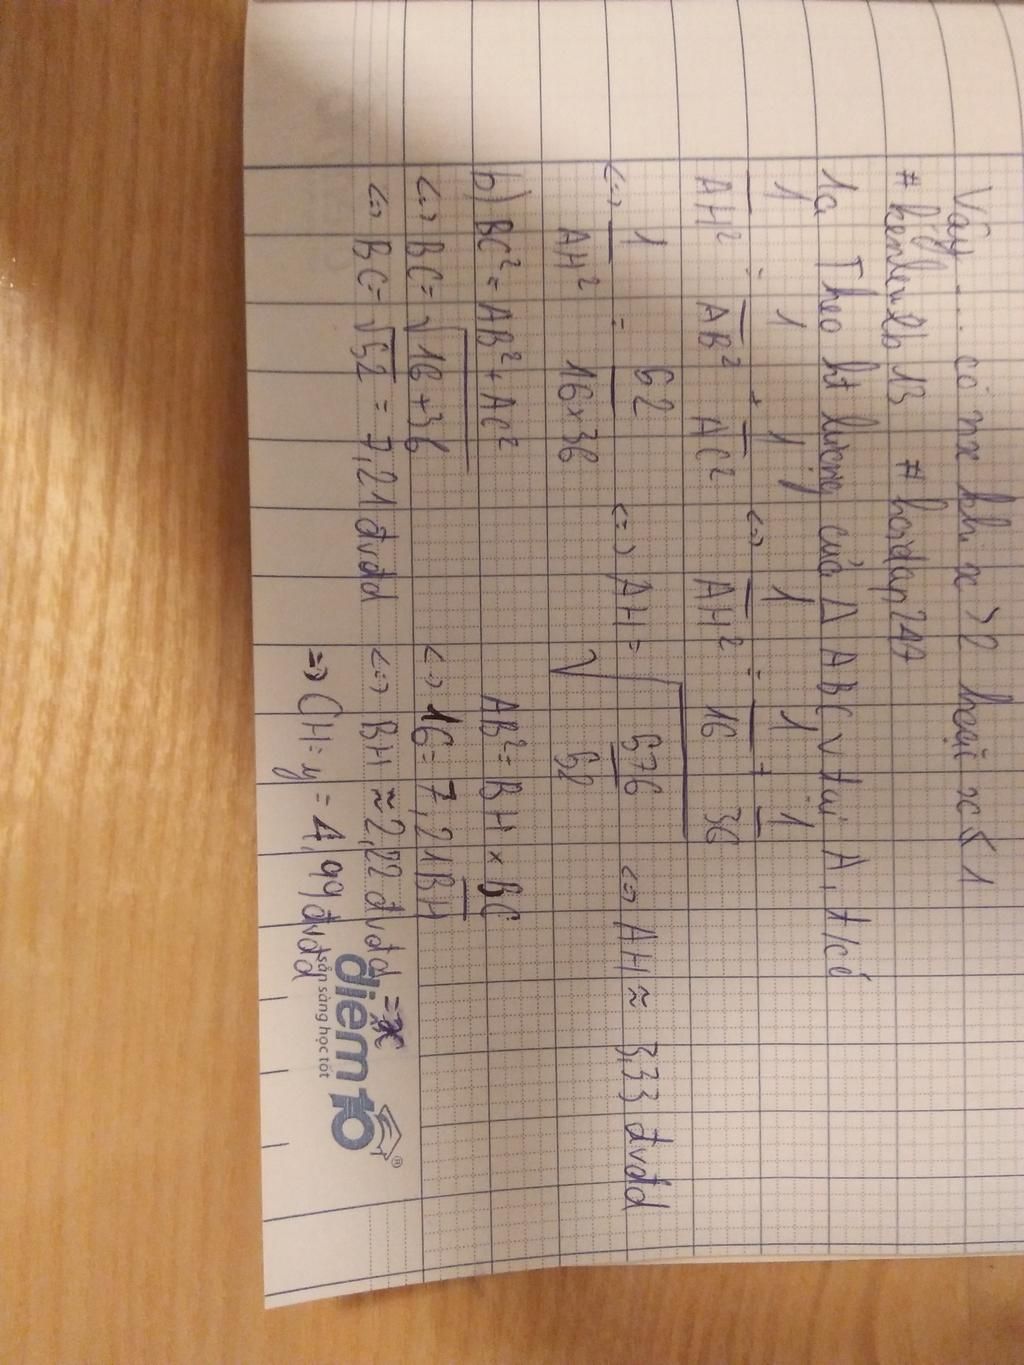 Vậy.... có nx khi x > 2 hoặc x < 1
# kenlewlb 13 # hoidap247
1a Theo ht lượng của Δ ABC v tại A, t/có
1/AH² = 1/AB² + 1/AC² <=> 1/AH² = 1/16 + 1/36
<=> 1/AH² = 52/16×36 <=> AH = √576/52 <=> AH ≈ 3,33 đvđd
b) BC² = AB² + AC²
<=> BC = √16 + 36
<=> BC = √52 = 7,21 đvđd
AB² = BH × BC
<=> 16 = 7,21BH
<=> BH ≈ 2,22 đvđd = x
=> CH = y = 4,99 đvđd
điểm 10 ®
sẵn sàng học tốt